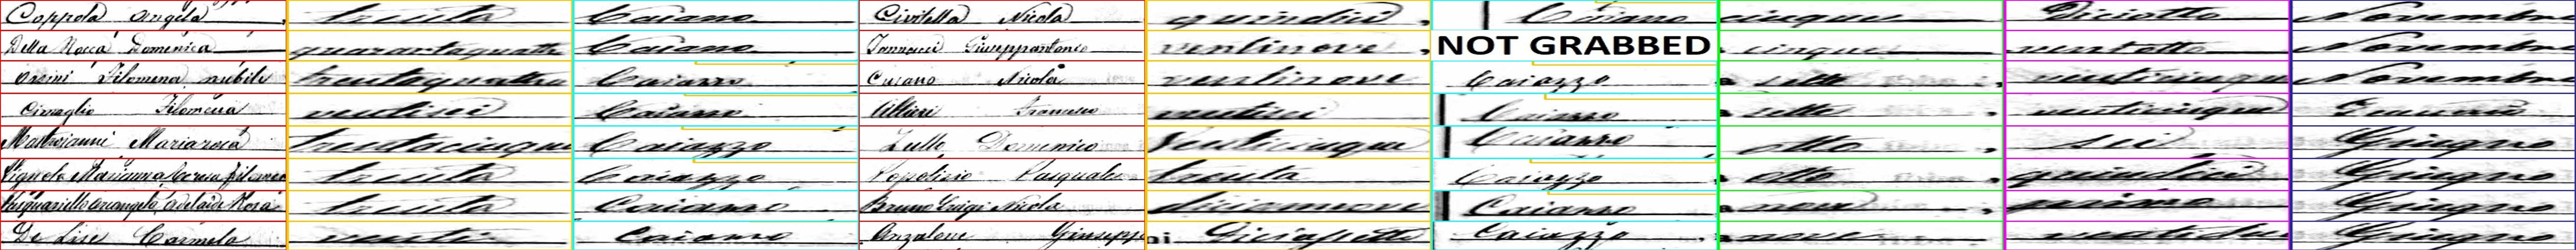 Coppola Angela trenta Caiazzo Civitella Nicola quindici Caiazzo cinque Diciotto Novembre
Della Rocca Domenica quarantaquattro Caiazzo Giuseppantonio ventinove NOT GRABBED cinque ventotto Novembre
Orsini Filomena nubile trentaquattro Caiazzo Cusano Nicola ventinove Caiazzo sette venticinque Novembre
Filomena ventisei Caiazzo Altieri ventisei Caiazzo sette venticinque Gennaro
Mastroianni Mariarosa trentacinque Caiazzo Zullo Domenico Venticinque Caiazzo otto sei Giugno
Marianna trenta Caiazzo Pasquale trenta Caiazzo otto quindici Giugno
trenta Caiazzo Bruno Luigi Nicola diciannove Caiazzo nove primo Giugno
De Lise Carmela venti Caiazzo Anzalone Giuseppe Diciasette Caiazzo nove Giugno